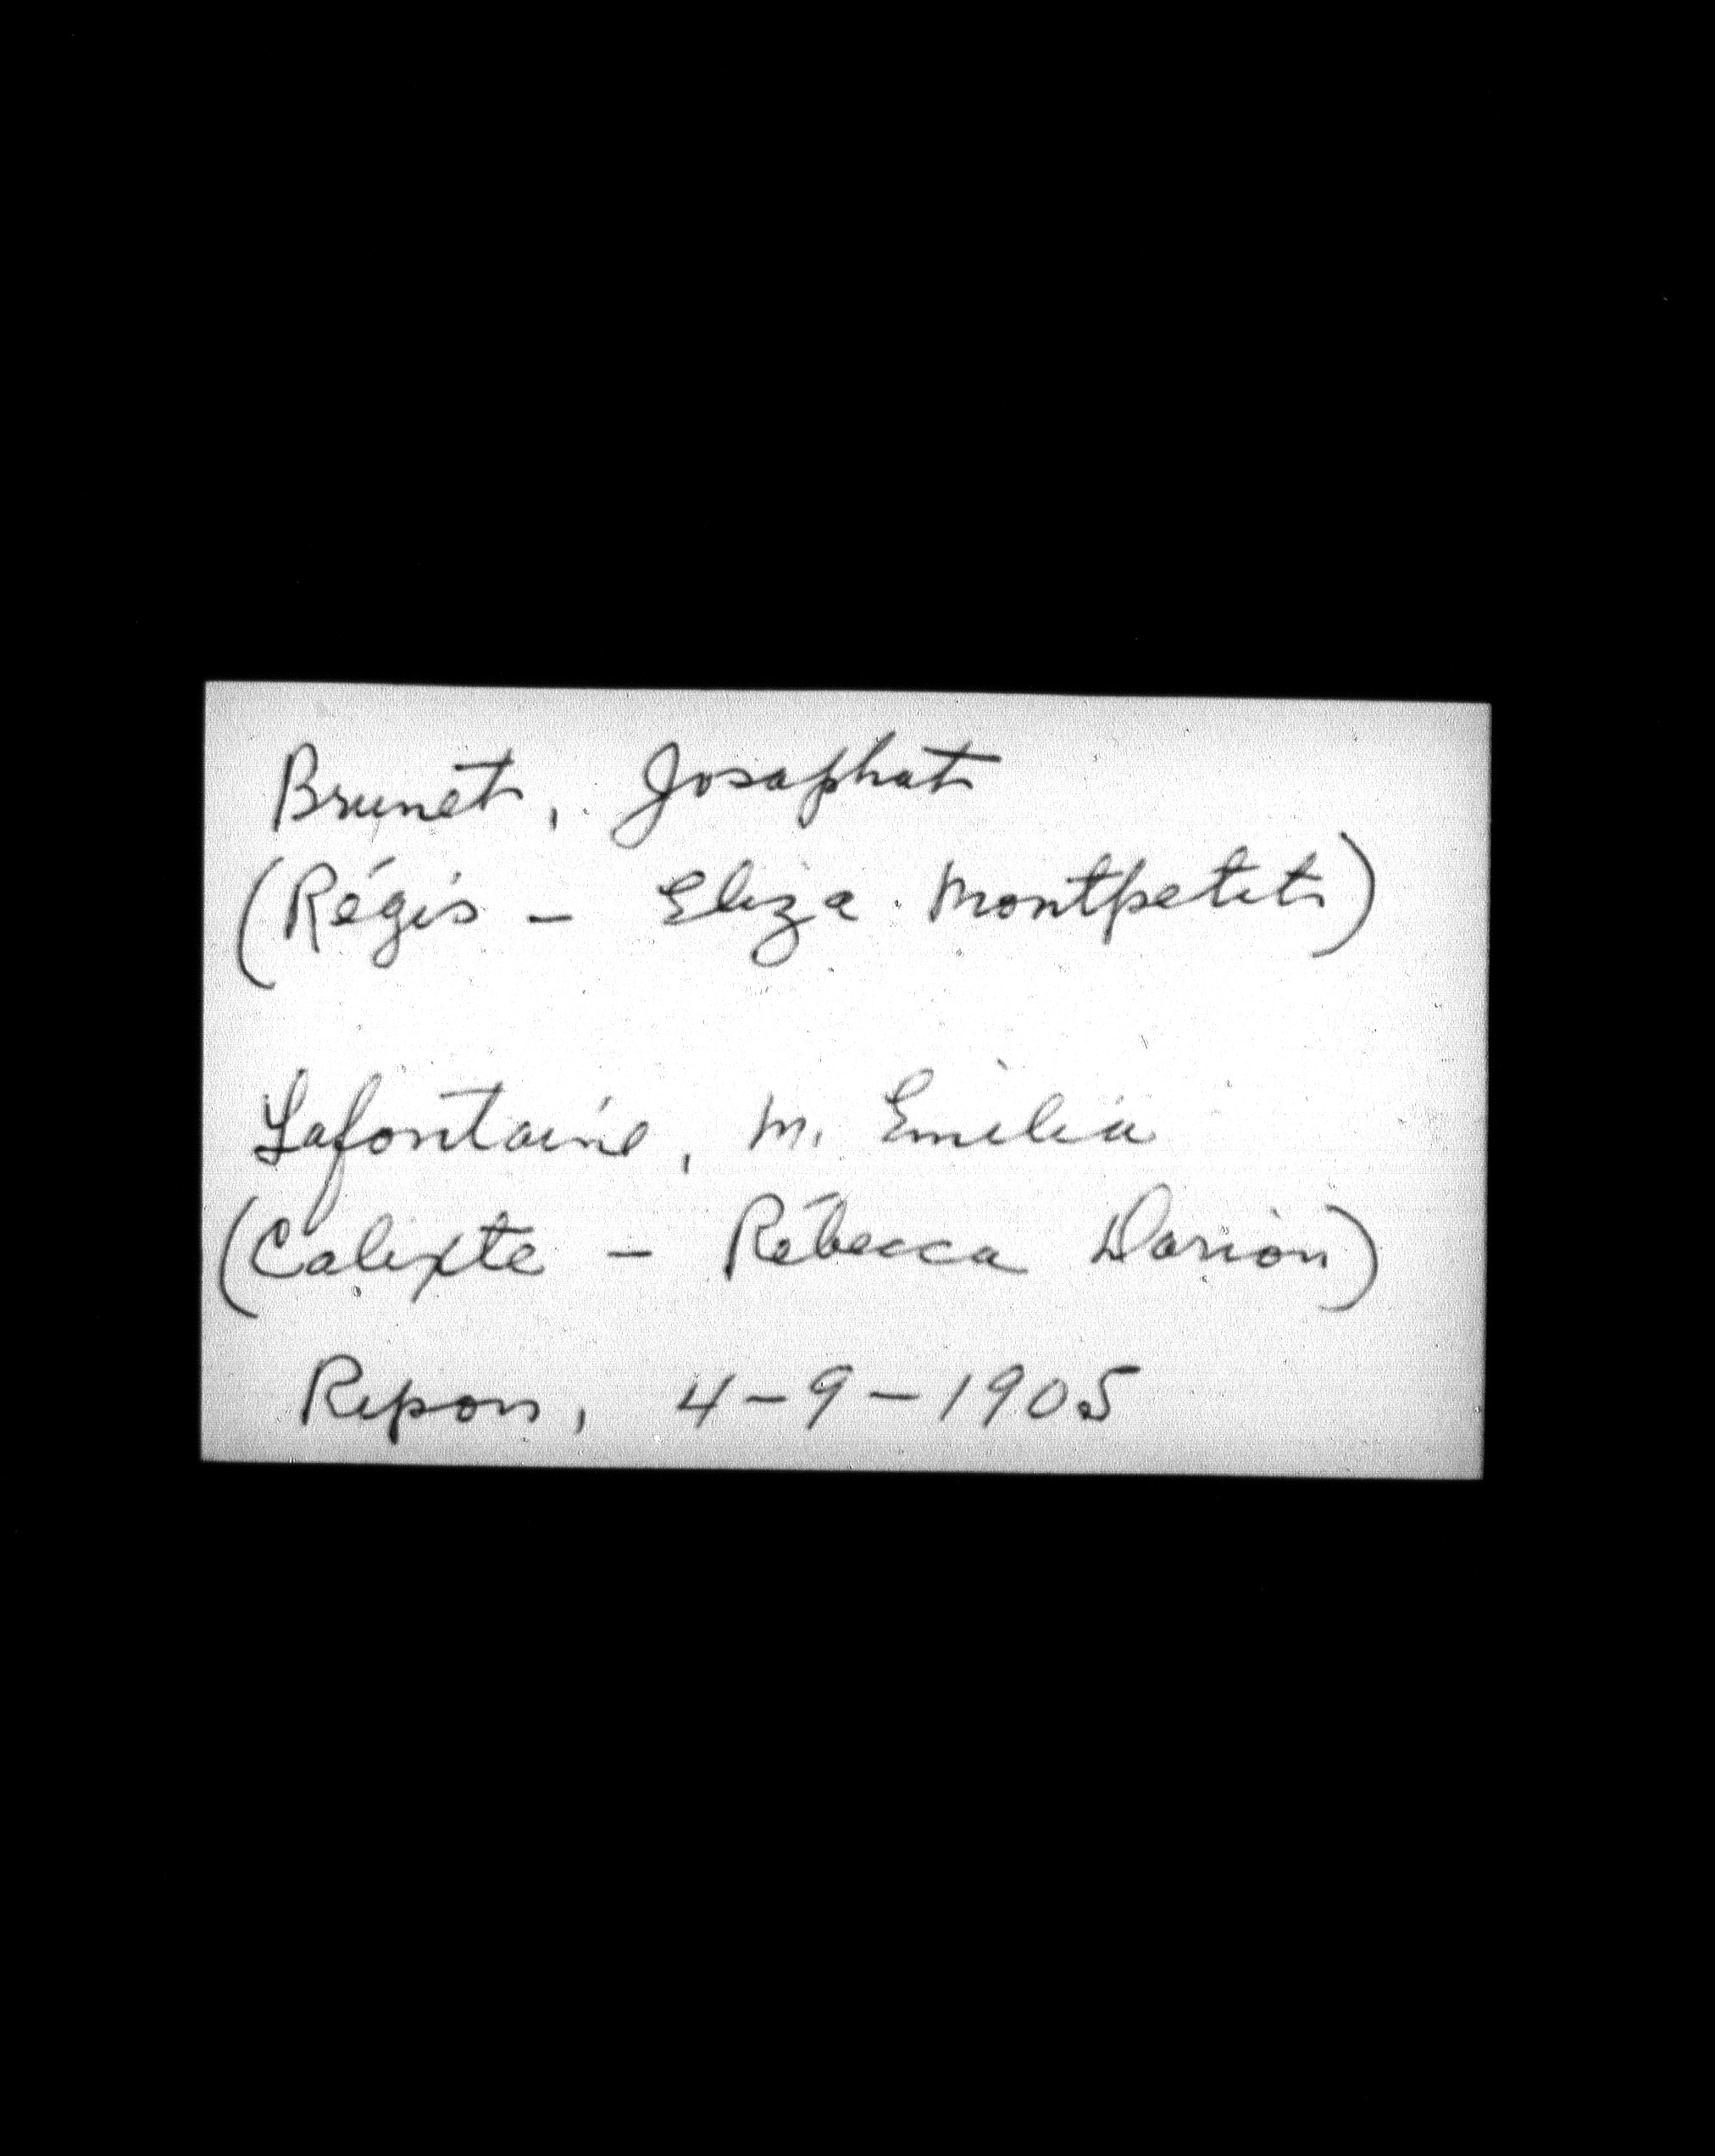 Brunet, Josaphat
(Régis - Eliza Montpetit)
Lafontaine, M. Emilia
(Calixte - Rébecca Dorion)
Ripon, 4-9-1905